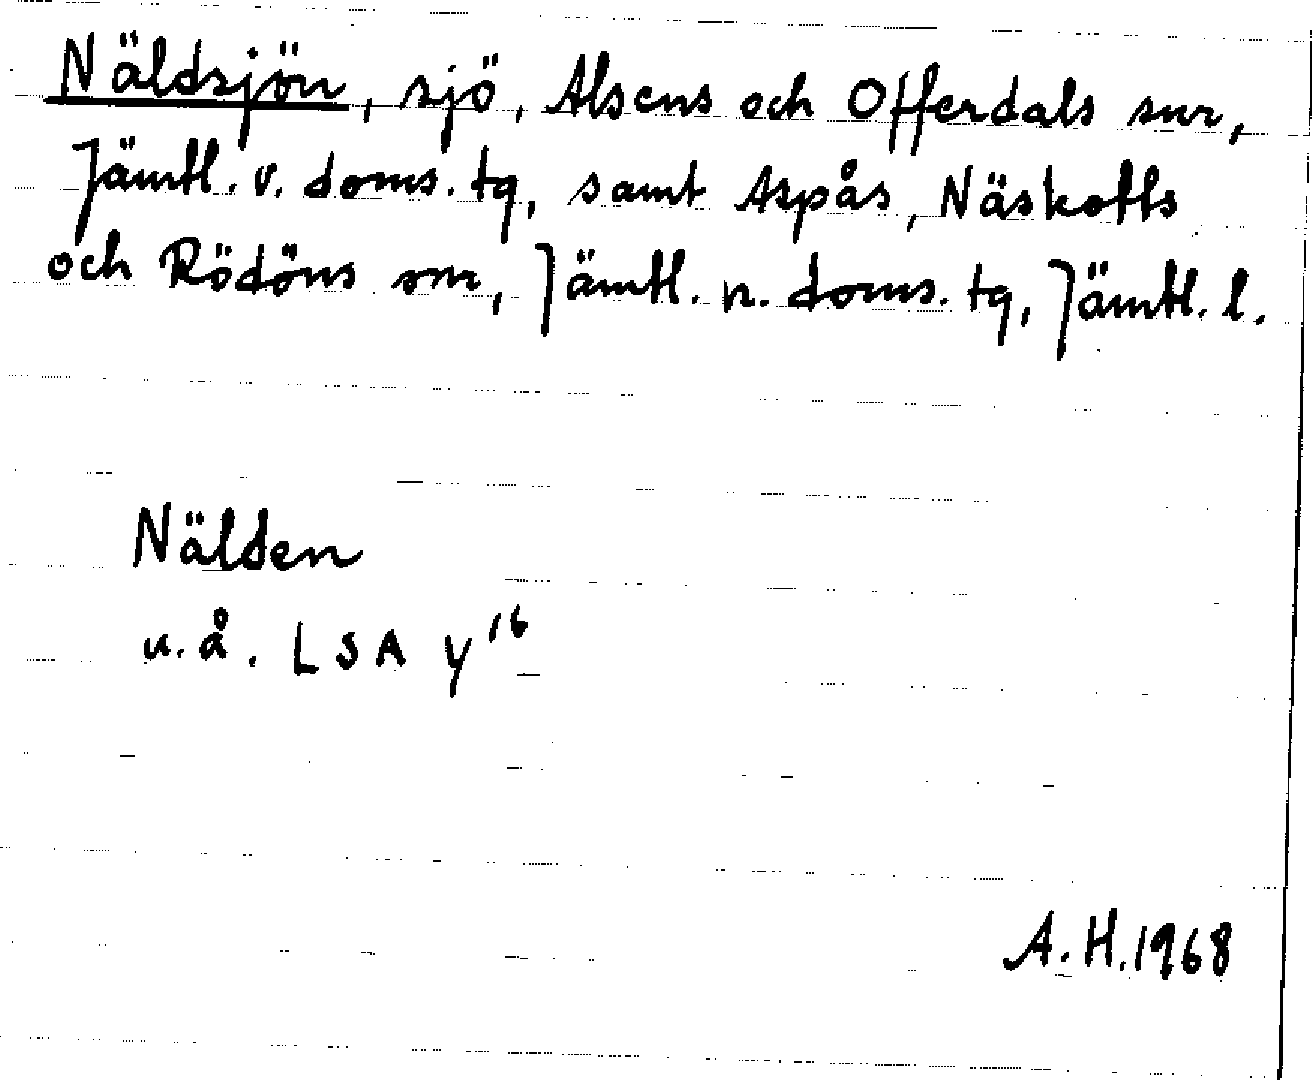 Näldsjön, sjö, Alsens och Offerdals snr,
Jämtl. v. doms. tg, samt Aspås, Näskotts
och Rödöns snr, Jämtl. n. doms. tg, Jämtl. l.
Nälden
u. å. LSA Y¹⁶
A. H. 1968